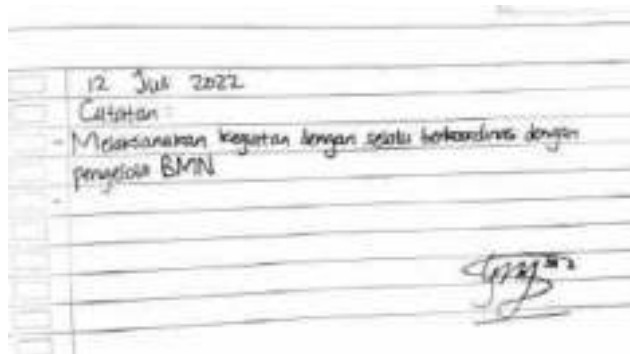 12 Juli 2022
Catatan :
- Melaksanakan kegiatan dengan selalu berkoordinasi dengan
pengelola BMN
-